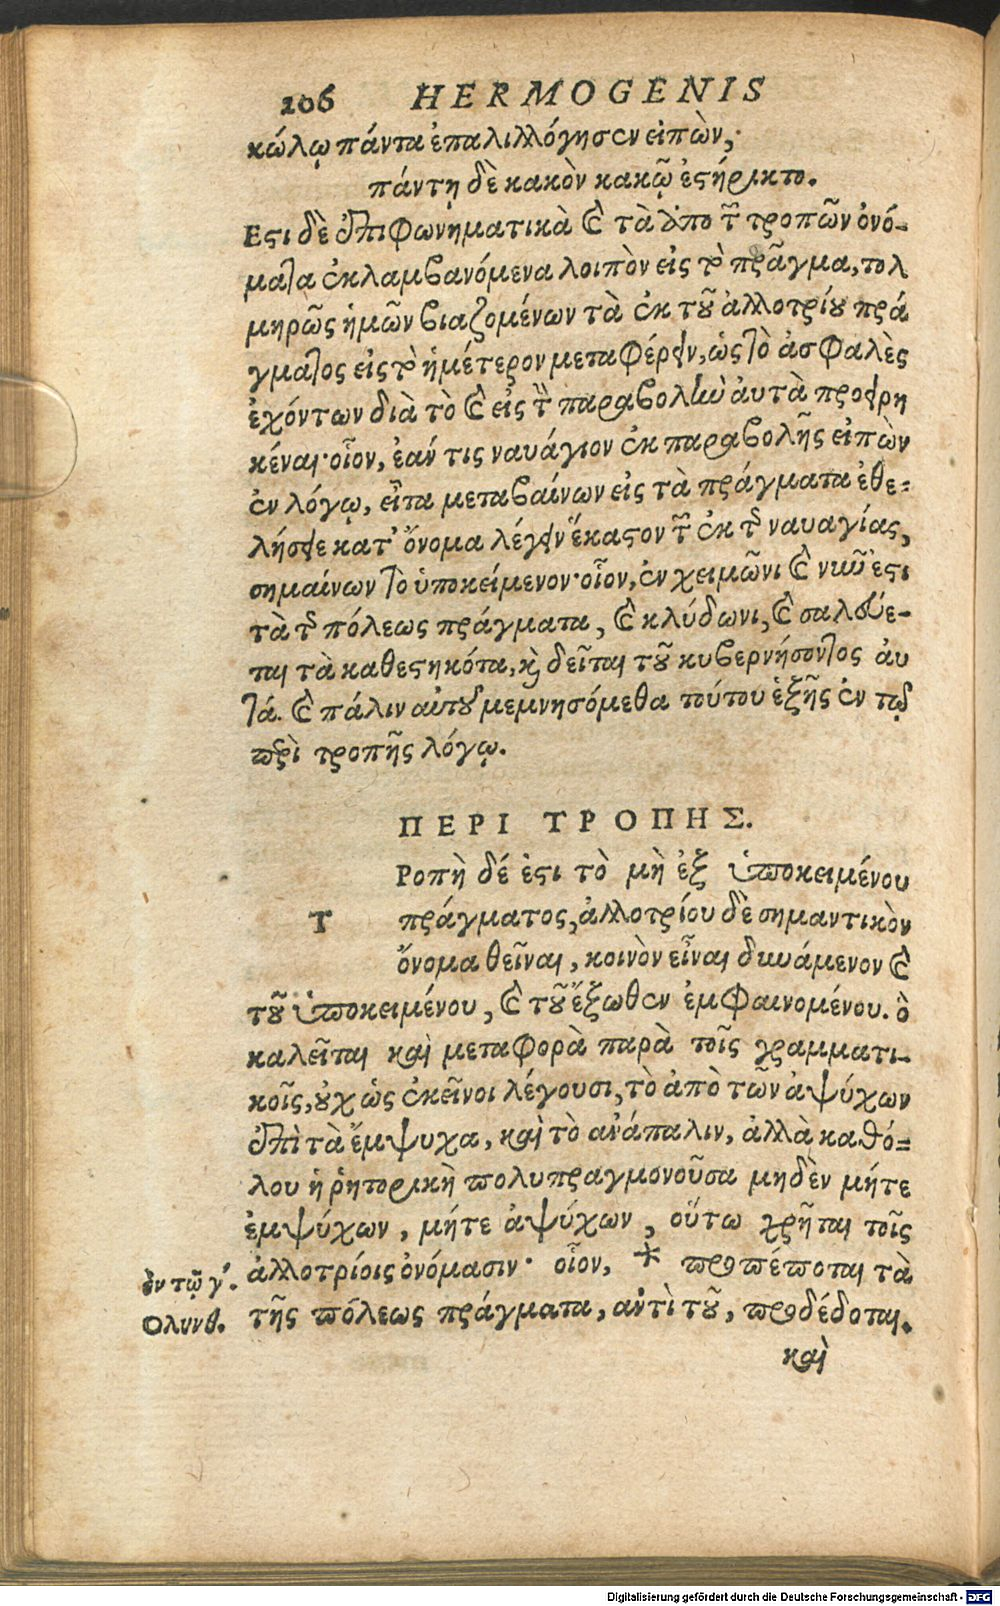 206 HERMOGENIS
κώλῳ πάντα ἐπαλιλλόγησεν εἰπὼν,
πάντη δὲ κακὸν κακῷ ἐστήρικτο.
Εστι δὲ ἐπιφωνηματικὰ καὶ τὰ ἀπὸ τῶν τροπῶν ὀνό-
ματα ἐκλαμβανόμενα λοιπὸν εἰς τὸ πρᾶγμα, τολ
μηρῶς ἡμῶν βιαζομένων τὰ ἐκ τοῦ ἀλλοτρίου πρά
γματος εἰς τὸ ἡμέτερον μεταφέρειν, ὡς τὸ ἀσφαλὲς
ἐχόντων διὰ τὸ καὶ εἰς τὴν παραβολὴν αὐτὰ προειρη
κέναι· οἷον, ἐάν τις ναυάγιον ἐκ παραβολῆς εἰπὼν
ἐν λόγῳ, εἶτα μεταβαίνων εἰς τὰ πράγματα ἐθε-
λήσειε κατ' ὄνομα λέγειν ἕκαστον τῶν ἐκ τῆς ναυαγίας,
σημαίνων τὸ ὑποκείμενον· οἷον, ἐν χειμῶνι καὶ νῦν ἐστι
τὰ τῆς πόλεως πράγματα, καὶ κλύδωνι, καὶ σαλεύε-
ται τὰ καθεστηκότα, καὶ δεῖται τοῦ κυβερνήσοντος αὐ
τά. καὶ πάλιν αὐτοῦ μεμνησόμεθα τούτου ἑξῆς ἐν τῷ
περὶ τροπῆς λόγῳ.
ΠΕΡΙ ΤΡΟΠΗΣ.
τ Ροπὴ δέ ἐστι τὸ μὴ ἐξ ὑποκειμένου
πράγματος, ἀλλοτρίου δὲ σημαντικὸν
ὄνομα θεῖναι, κοινὸν εἶναι δυνάμενον καὶ
τοῦ ὑποκειμένου, καὶ τοῦ ἔξωθεν ἐμφαινομένου. ὃ
καλεῖται καὶ μεταφορὰ παρὰ τοῖς γραμματι-
κοῖς, οὐχ ὡς ἐκεῖνοι λέγουσι, τὸ ἀπὸ τῶν ἀψύχων
ἐπὶ τὰ ἔμψυχα, καὶ τὸ ἀνάπαλιν, ἀλλὰ καθό-
λου ἡ ῥητορικὴ πολυπραγμονοῦσα μηδὲν μήτε
ἐμψύχων, μήτε ἀψύχων, οὕτω χρῆται τοῖς
ἀλλοτρίοις ὀνόμασιν· οἷον, * προπέποται τὰ
τῆς πόλεως πράγματα, ἀντὶ τοῦ, προδέδοται.
ἐν τῷ γʹ.
Ολυνθ.
καὶ
Digitalisierung gefördert durch die Deutsche Forschungsgemeinschaft - DFG